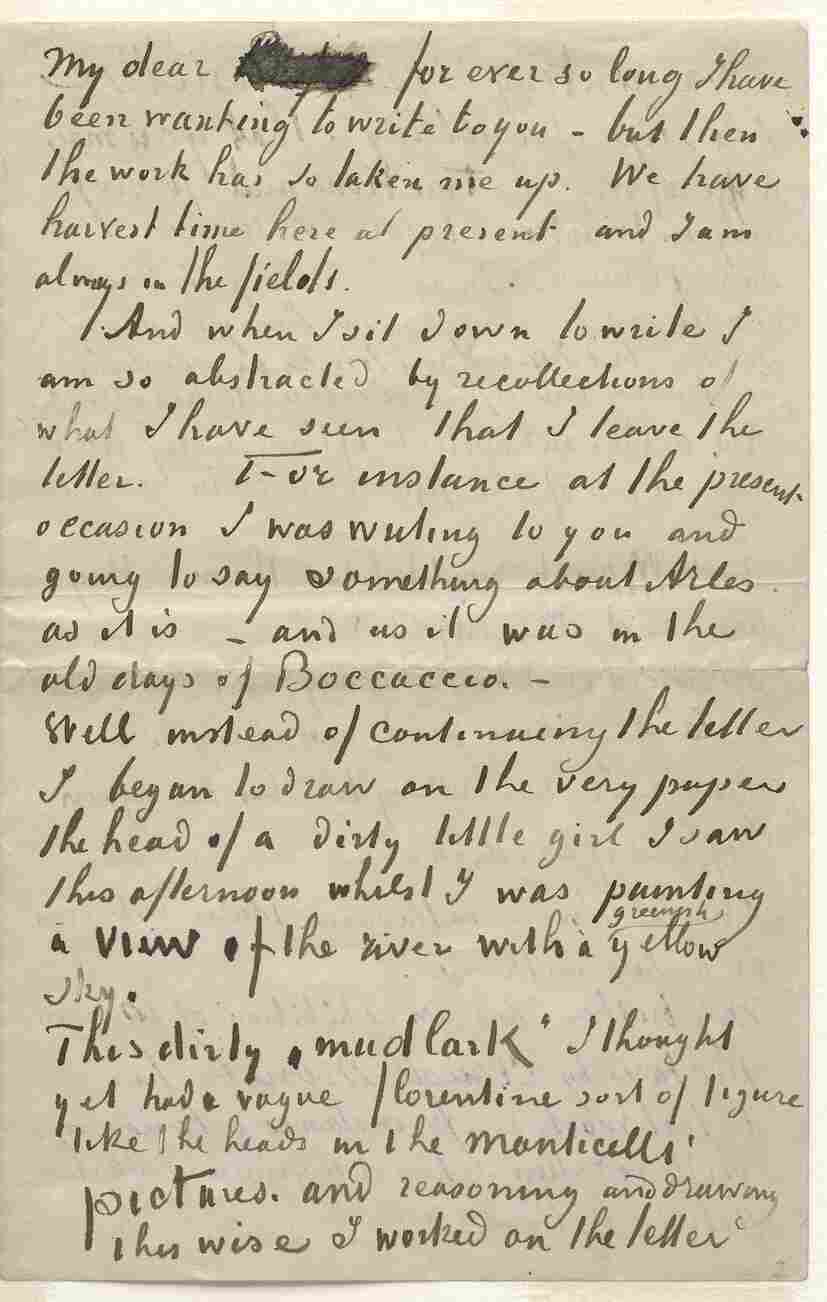 My dear for ever so long I have
been wanting to write to you – but then
the work has so taken me up. We have
harvest time here at present and I am
always in the fields.
And when I sit down to write I
am so abstracted by recollections of
what I have seen that I leave the
letter. For instance at the present
occasion I was writing to you and
going to say something about Arles
as it is – and as it was in the
old days of Boccaccio. –
Well instead of continuing the letter
I began to draw on the very paper
the head of a dirty little girl I saw
this afternoon whilst I was painting
greenish
a view of the river with a yellow
sky.
This dirty „mudlark“ I thought
yet had a vague florentine sort of figure
like the heads in the Monticelli
pictures. and reasoning and drawing
this wise I worked on the letter